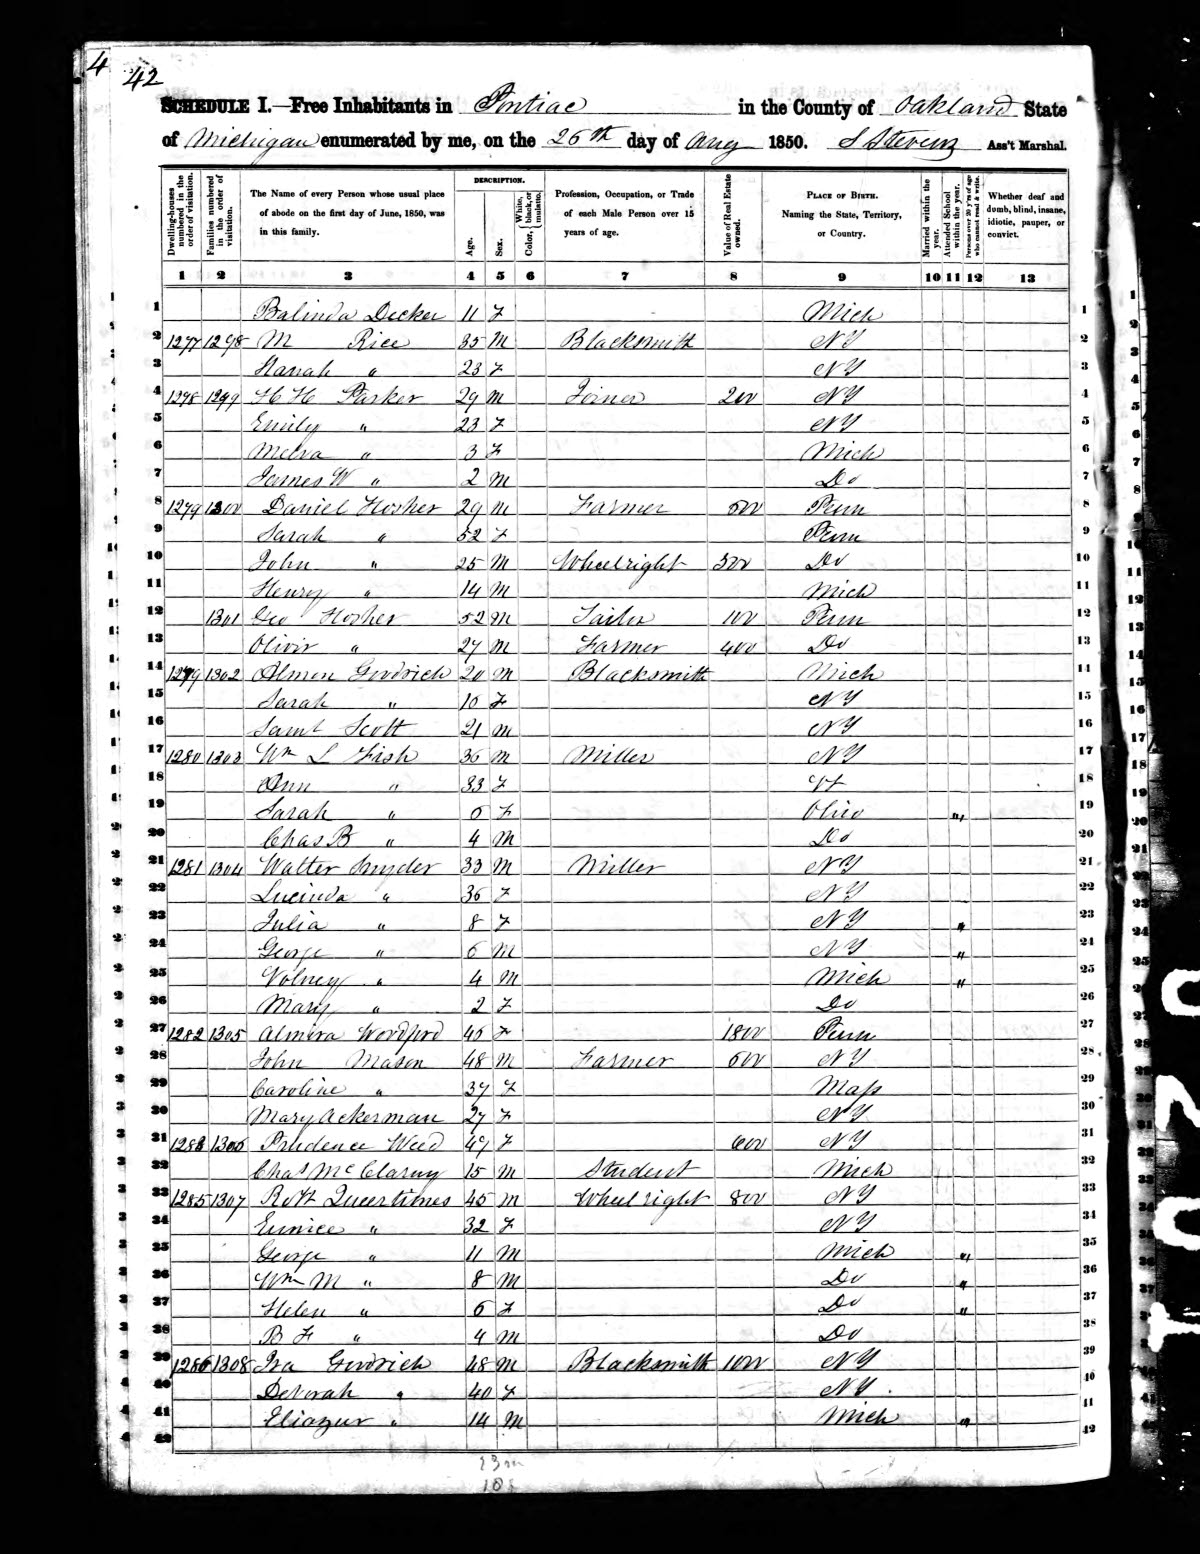 4
42
SCHEDULE I.—Free Inhabitants in Pontiac in the County of Oakland State
of Michigan enumerated by me, on the 26th day of Aug 1850. S Stevens Ass't Marshal.
Dwelling-houses numbered in the order of visitation.
Families numbered in the order of visitation.
The Name of every Person whose usual place of abode on the first day of June, 1850, was in this family.
DESCRIPTION.
Age.
Sex.
Color, White, black, or mulatto.
Profession, Occupation, or Trade of each Male Person over 15 years of age.
Value of Real Estate owned.
PLACE OF BIRTH.
Naming the State, Territory, or Country.
Married within the year.
Attended School within the year.
Persons over 20 y'rs of age who cannot read & write.
Whether deaf and dumb, blind, insane, idiotic, pauper, or convict.
1 2 3 4 5 6 7 8 9 10 11 12 13
1 Balinda Decker 11 F Mich 1
2 1277 1298 M Rice 35 M Blacksmith NY 2
3 Hanah " 23 F NY 3
4 1278 1299 H H Parker 29 M Joiner 200 NY 4
5 Emily " 23 F NY 5
6 Melva " 3 F Mich 6
7 James W " 2 M Do 7
8 1279 1300 Daniel Hosher 29 M Farmer 500 Penn 8
9 Sarah " 52 F Penn 9
10 John " 25 M Wheelright 300 Do 10
11 Henry " 14 M Mich 11
12 1301 Geo Hosher 52 M Tailor 100 Penn 12
13 Olivir " 27 M Farmer 400 Do 13
14 1279 1302 Almon Goodrich 20 M Blacksmith Mich 14
15 Sarah " 16 F NY 15
16 Saml Scott 21 M NY 16
17 1280 1303 Wm L Fish 36 M Miller NY 17
18 Ann " 33 F Vt 18
19 Sarah " 6 F Ohio " 19
20 Chas B " 4 M Do 20
21 1281 1304 Walter Snyder 33 M Miller NY 21
22 Lucinda " 36 F NY 22
23 Julia " 8 F NY " 23
24 George " 6 M NY " 24
25 Volney " 4 M Mich " 25
26 Mary " 2 F Do 26
27 1282 1305 Almira Woodford 45 F 1800 Penn 27
28 John Mason 48 M Farmer 500 NY 28
29 Caroline " 37 F Mass 29
30 Mary Ackerman 27 F NY 30
31 1283 1306 Prudence Weed 47 F 600 NY 31
32 Chas McClarny 15 M Student Mich 32
33 1285 1307 Robt Queertimes 45 M Wheelright 800 NY 33
34 Eunice " 32 F NY 34
35 George " 11 M Mich " 35
36 Wm M " 8 M Do " 36
37 Helen " 6 F Do " 37
38 B F " 4 M Do 38
39 1286 1308 Ira Goodrich 48 M Blacksmith 1000 NY 39
40 Deborah " 40 F NY 40
41 Eliazur " 14 M Mich " 41
42 42
23 m